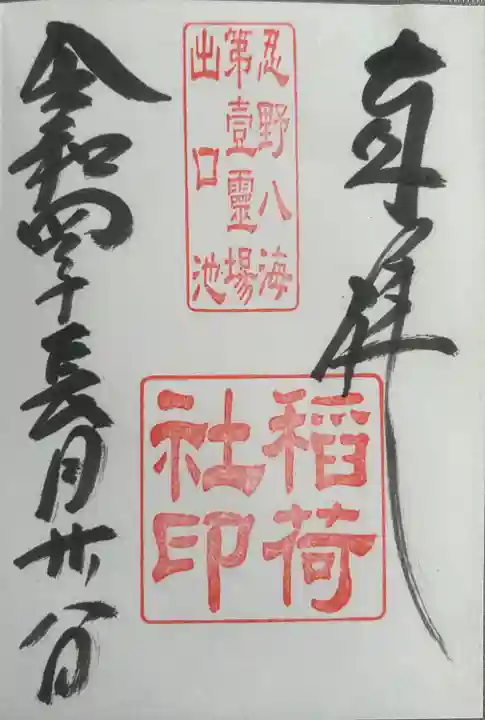 奉拝
忍野八海
第壹靈場
出口池
稲荷
社印
令和四年長月廿八日